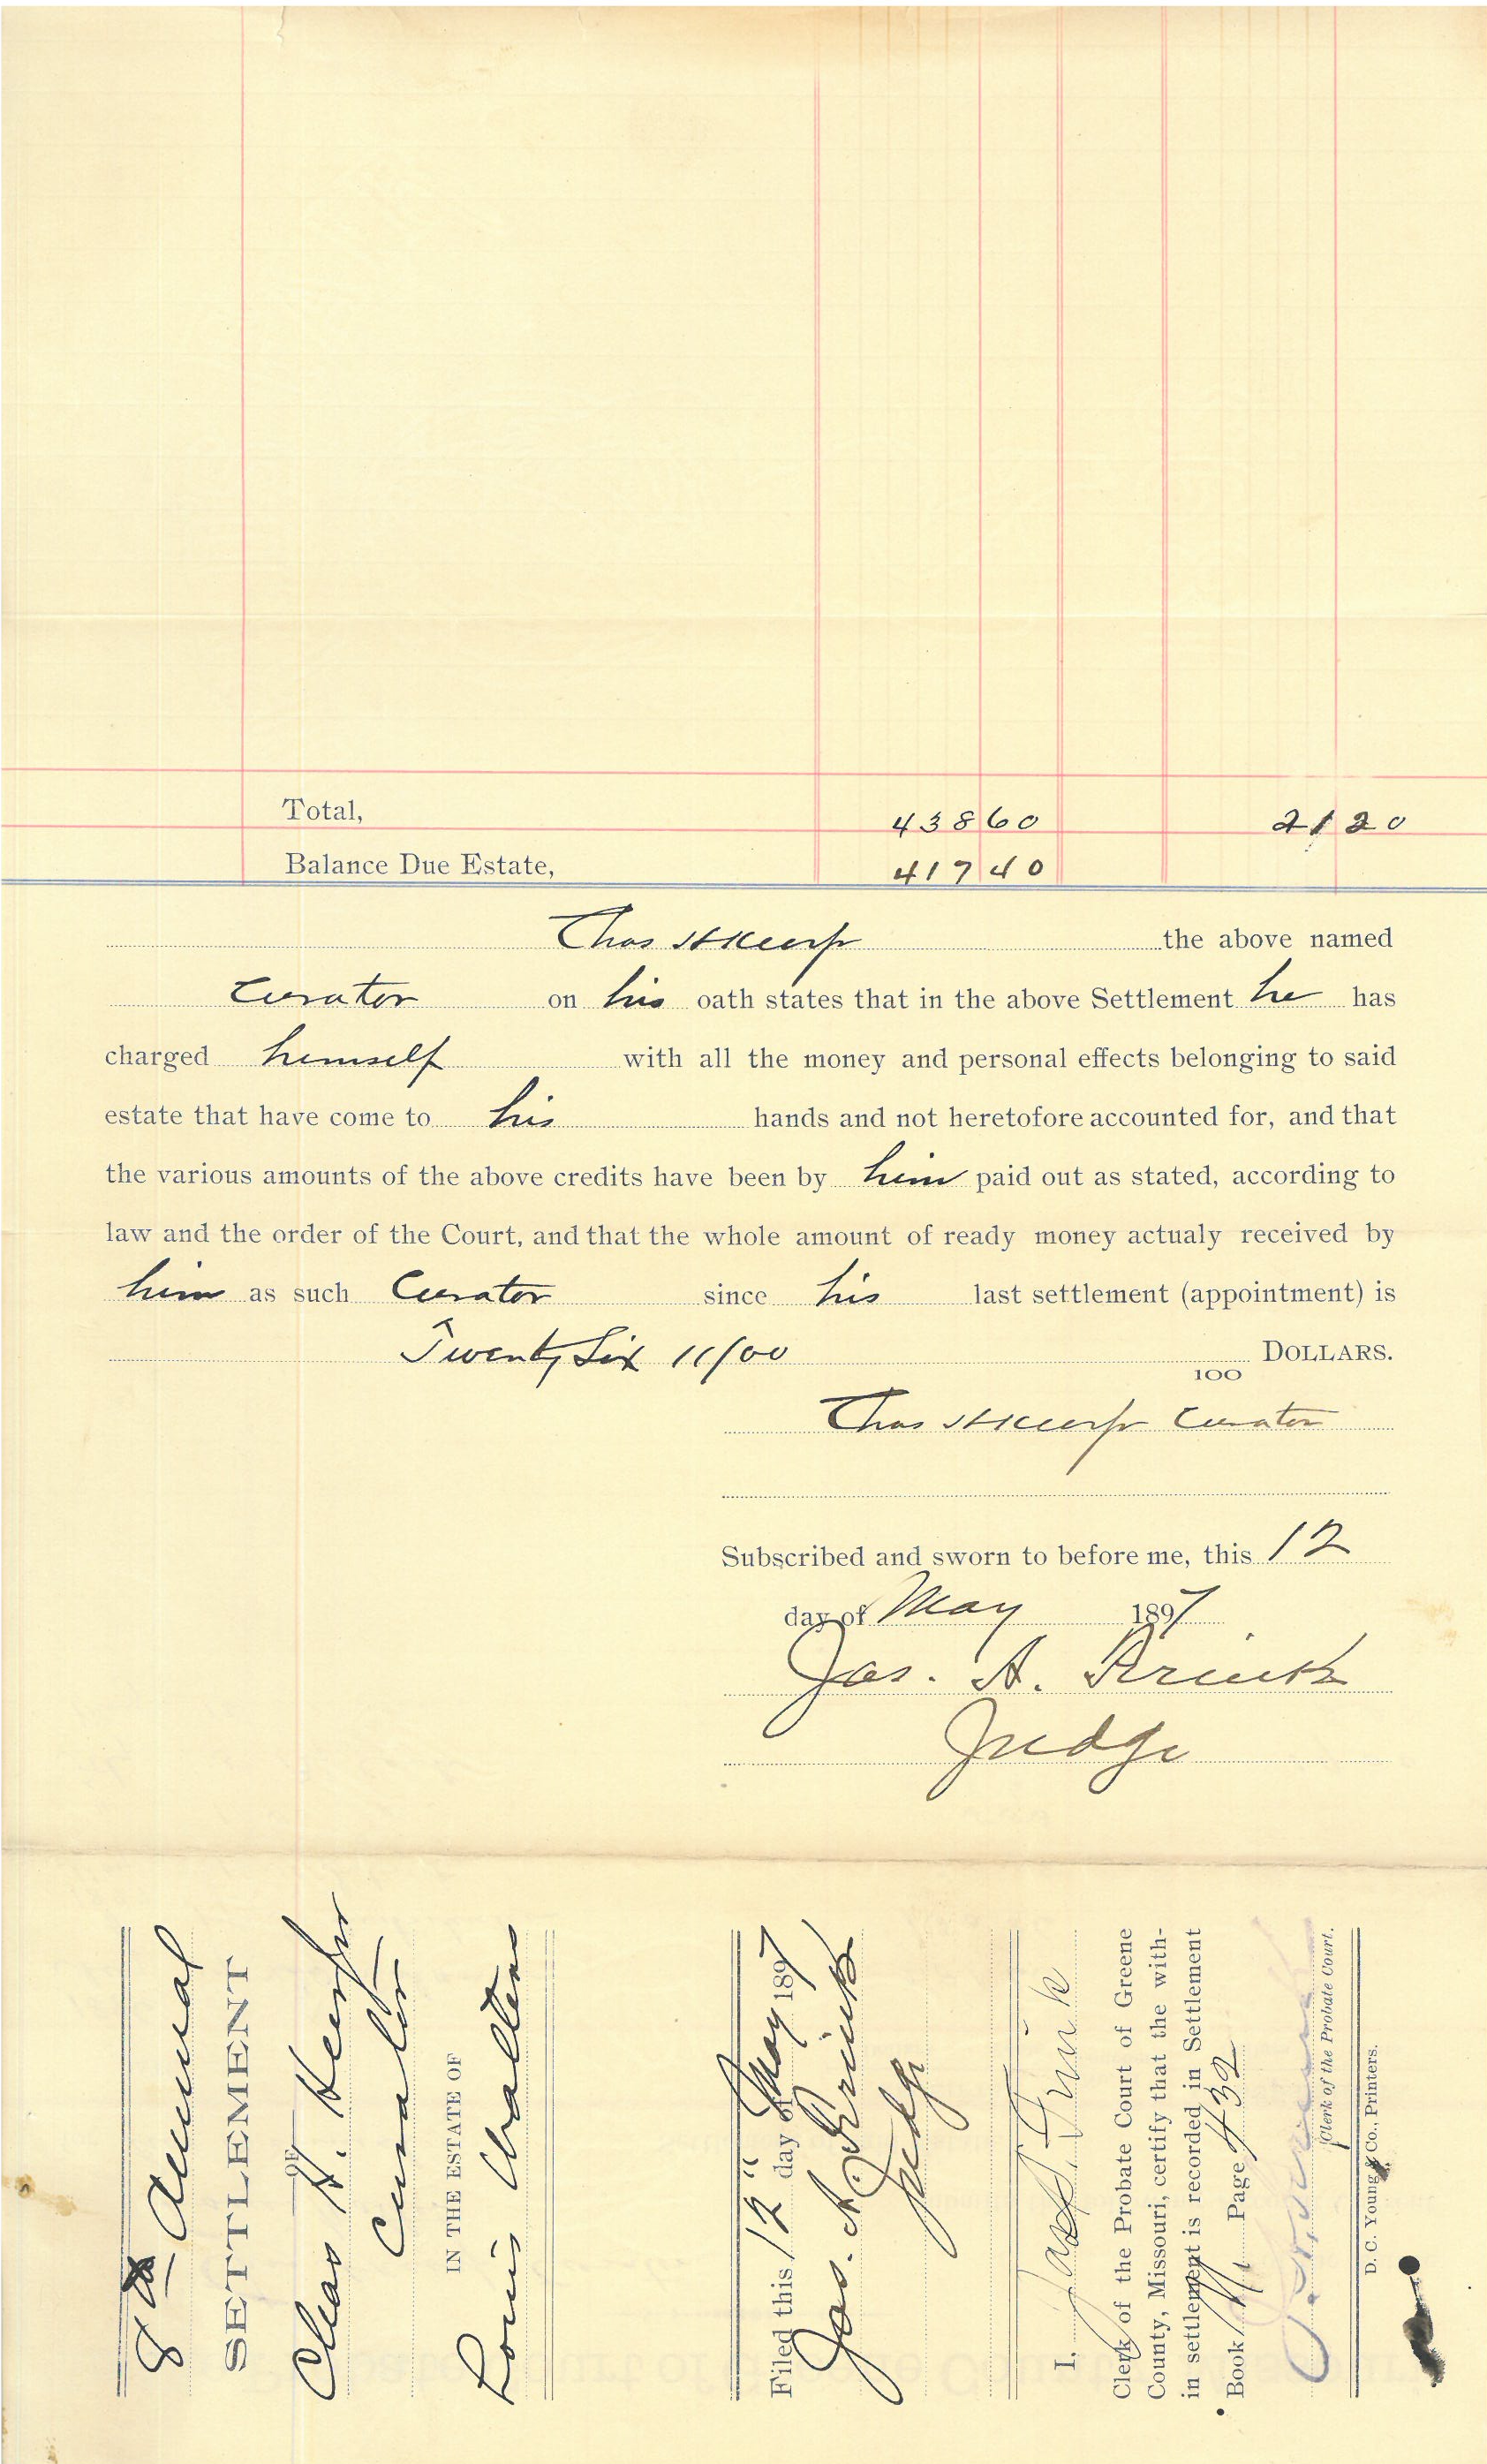 Total, 438 60 21 20
Balance Due Estate, 417 40
Chas H the above named
Curator on his oath states that in the above Settlement he has
charged himself with all the money and personal effects belonging to said
estate that have come to his hands and not heretofore accounted for, and that
the various amounts of the above credits have been by him paid out as stated, according to
law and the order of the Court, and that the whole amount of ready money actualy received by
him as such Curator since his last settlement (appointment) is
Twenty Six 11/00 DOLLARS.
100
Chas H Curator
Subscribed and sworn to before me, this 12
day of May 1897
Jas. A.
Judge
8th Annual
SETTLEMENT
OF
Chas H.
Curator
IN THE ESTATE OF
Louis
Filed this 12" day of May 1897
Jas. A
Judge
I,
Clerk of the Probate Court of Greene
County, Missouri, certify that the with-
in settlement is recorded in Settlement
Book Page 432
Clerk of the Probate Court.
D. C. Young & Co., Printers.